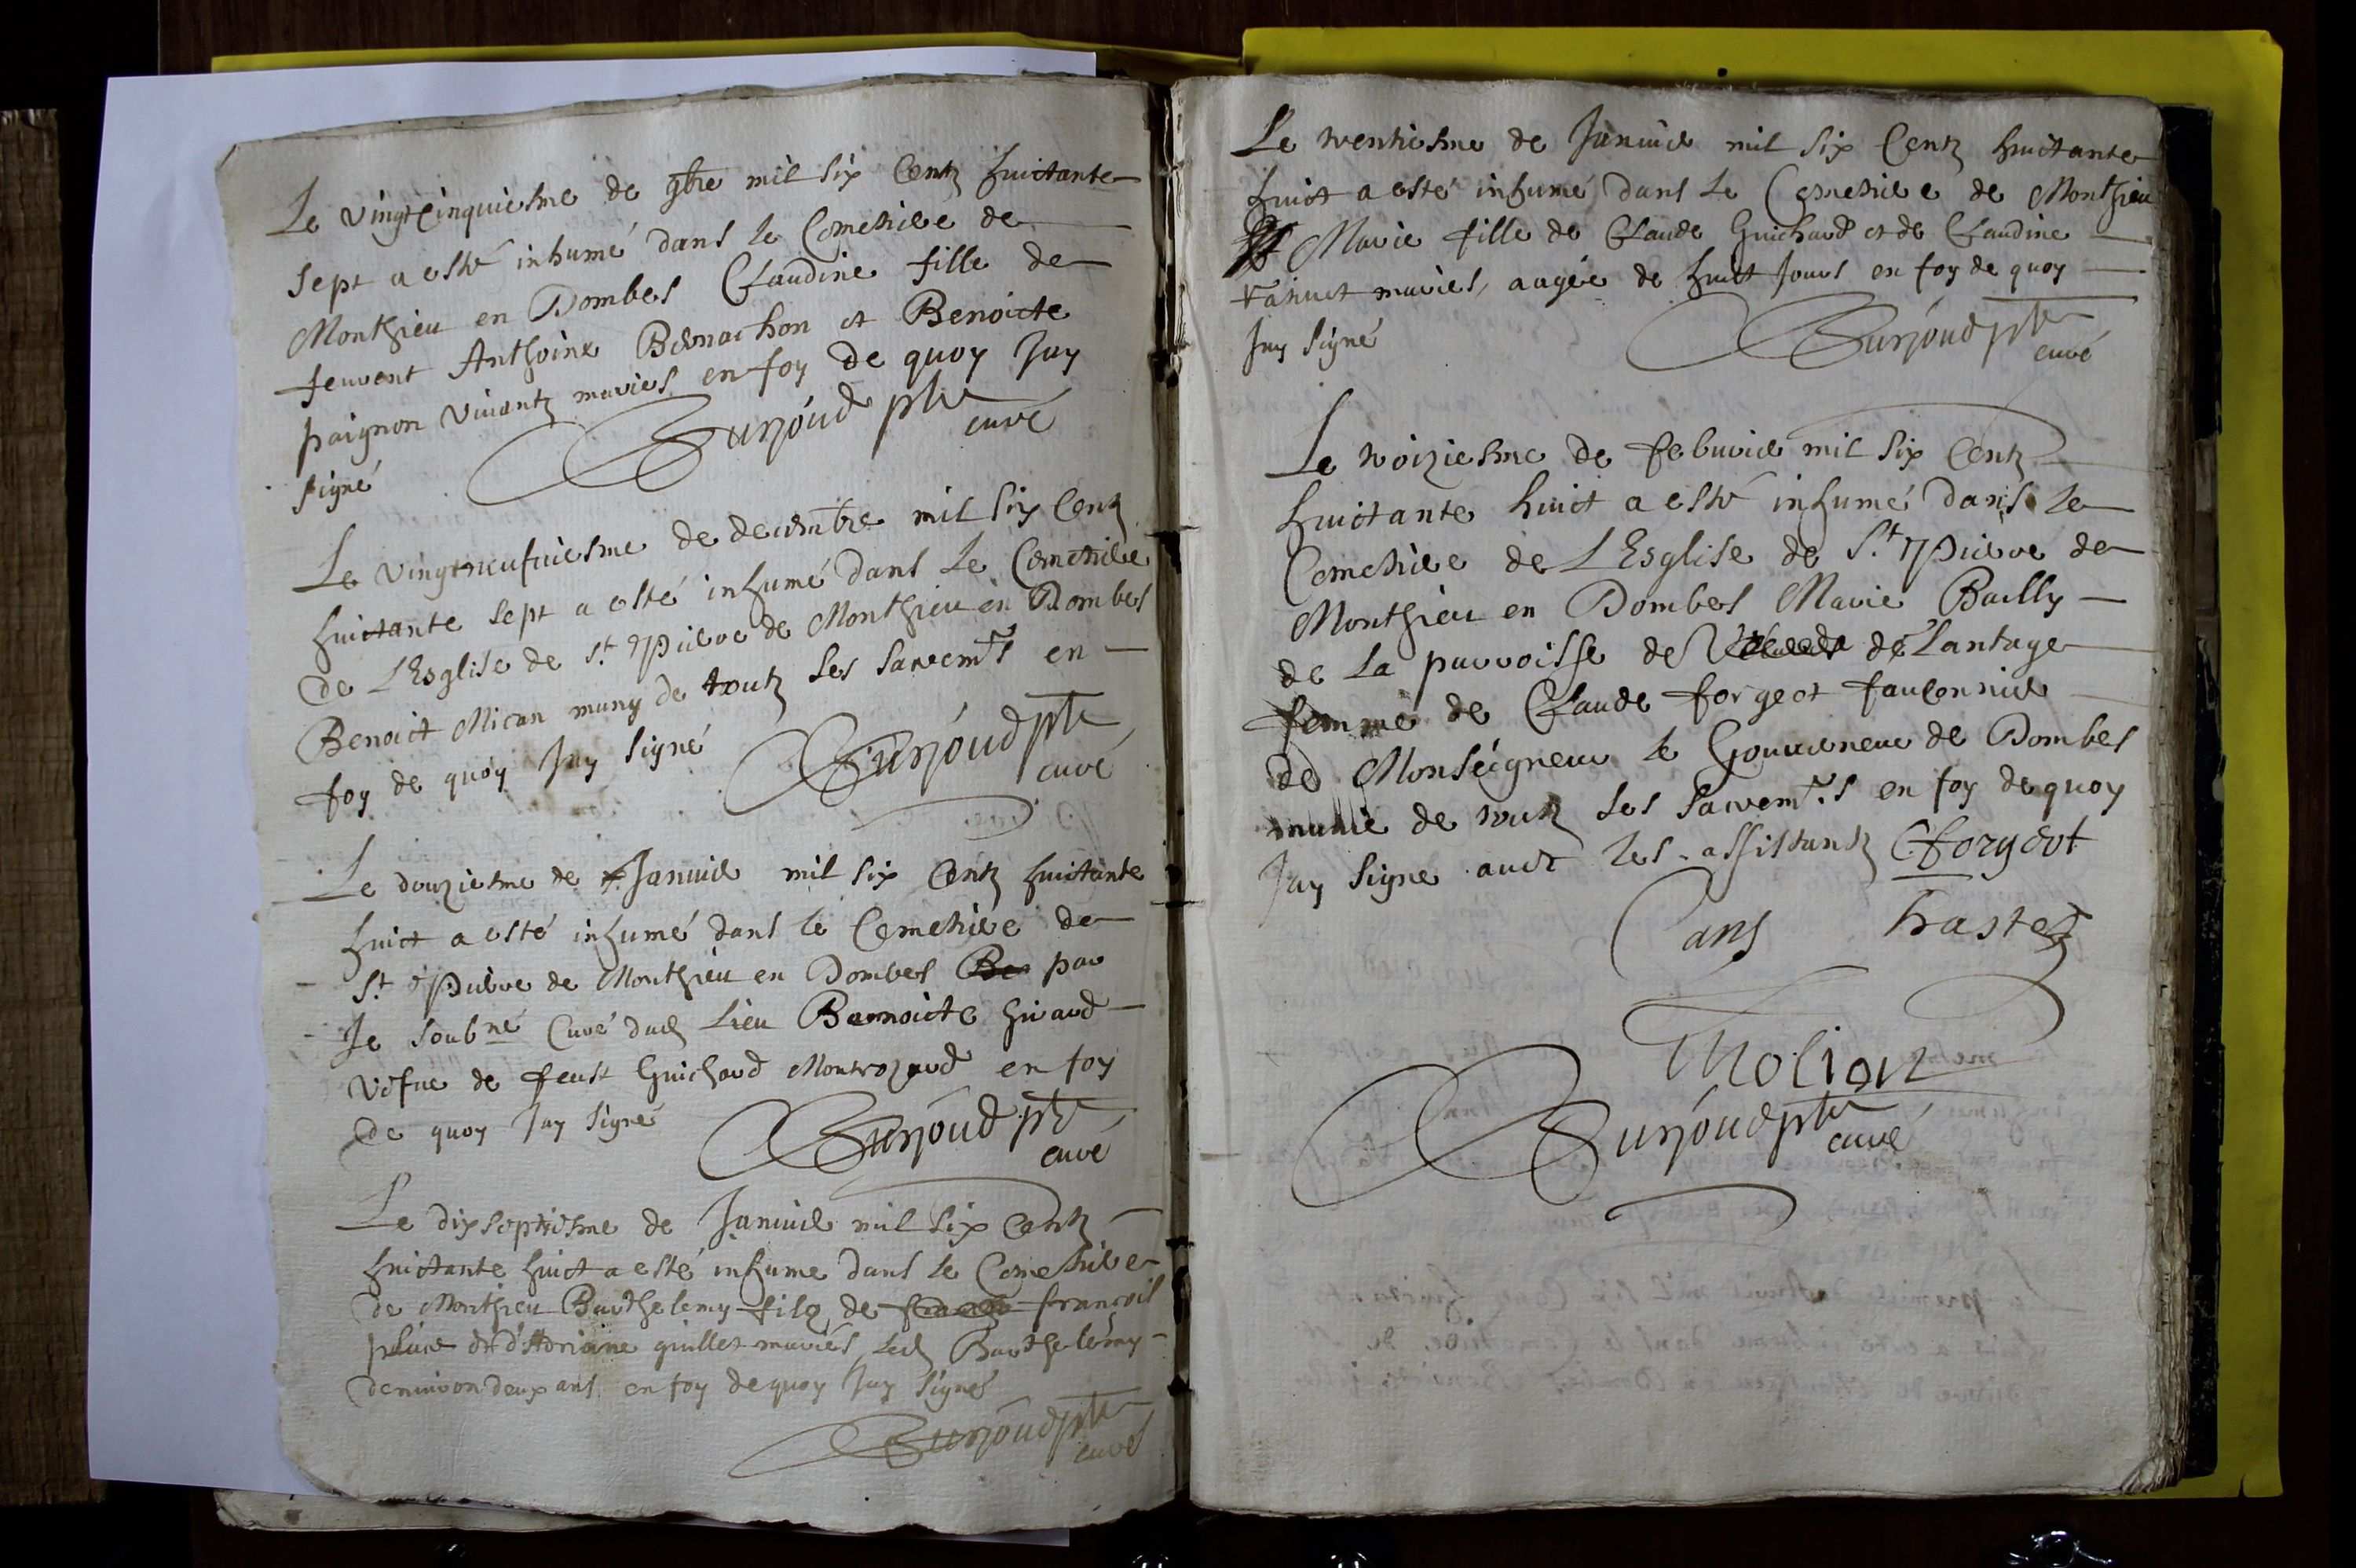 Le vingtcinquiesme de 9bre mil six Centz huictante
sept a esté inhumé dans le Cemetiere de
Monthieu en Dombes Claudine fille de
feuvent Anthoine Bernachon et Benoicte
paignon vivantz mariés en foy de quoy Jay
signé
Burjoud ptre
curé
Le vingtneufuiesme de decembre mil six Centz
huictante sept a esté inhumé dans le Cemetiere
de L'Esglise de St Pierre de Monthieu en Dombes
Benoict Mican muny de toutz les sacremts en
foy de quoy Jay signé
Burjoud ptre
curé
Le douziesme de Januier mil six Centz huictante
huict a esté inhumé dans le Cemetiere de
St Pierre de Monthieu en Dombes Be par
Je soubné Curé dud Lieu Bennoicte Girard
vefue de feust Guichard Montrozard en foy
de quoy Jay signé
Burjoud ptre
curé
Le dixseptiesme de Januier mil six Centz
huictante huict a esté inhume dans le Cemetiere
de Monthieu Barthelemy filz de francois
et d'Adriane guillet mariés led Barthelemy
denuiron deux ans en foy de quoy Jay signé
Burjoud ptre
curé
Le trentiesme de Januier mil six Centz huictante
huict a esté inhumé dans le Cemetiere de Monthieu
Marie fille de Claude Guichard et de Claudine
mariés, aagée de huict Jours en foy de quoy
Jay signé
Burjoud ptre
curé
Le troiziesme de febvrier mil six Centz
huictante huict a esté inhumé dans le
Cemetiere de L'Esglise de St Pierre de
Monthieu en Dombes Marie Bailly
de la parroisse de de Lantage
femme de Claude forgeot fauconnier
de Monseigneur le Gouverneur de Dombes
munie de toutz les sacremts en foy de quoy
Jay signe avec les assistantz C forgeot
Cans traster
Molion
Burjoud ptre
curé